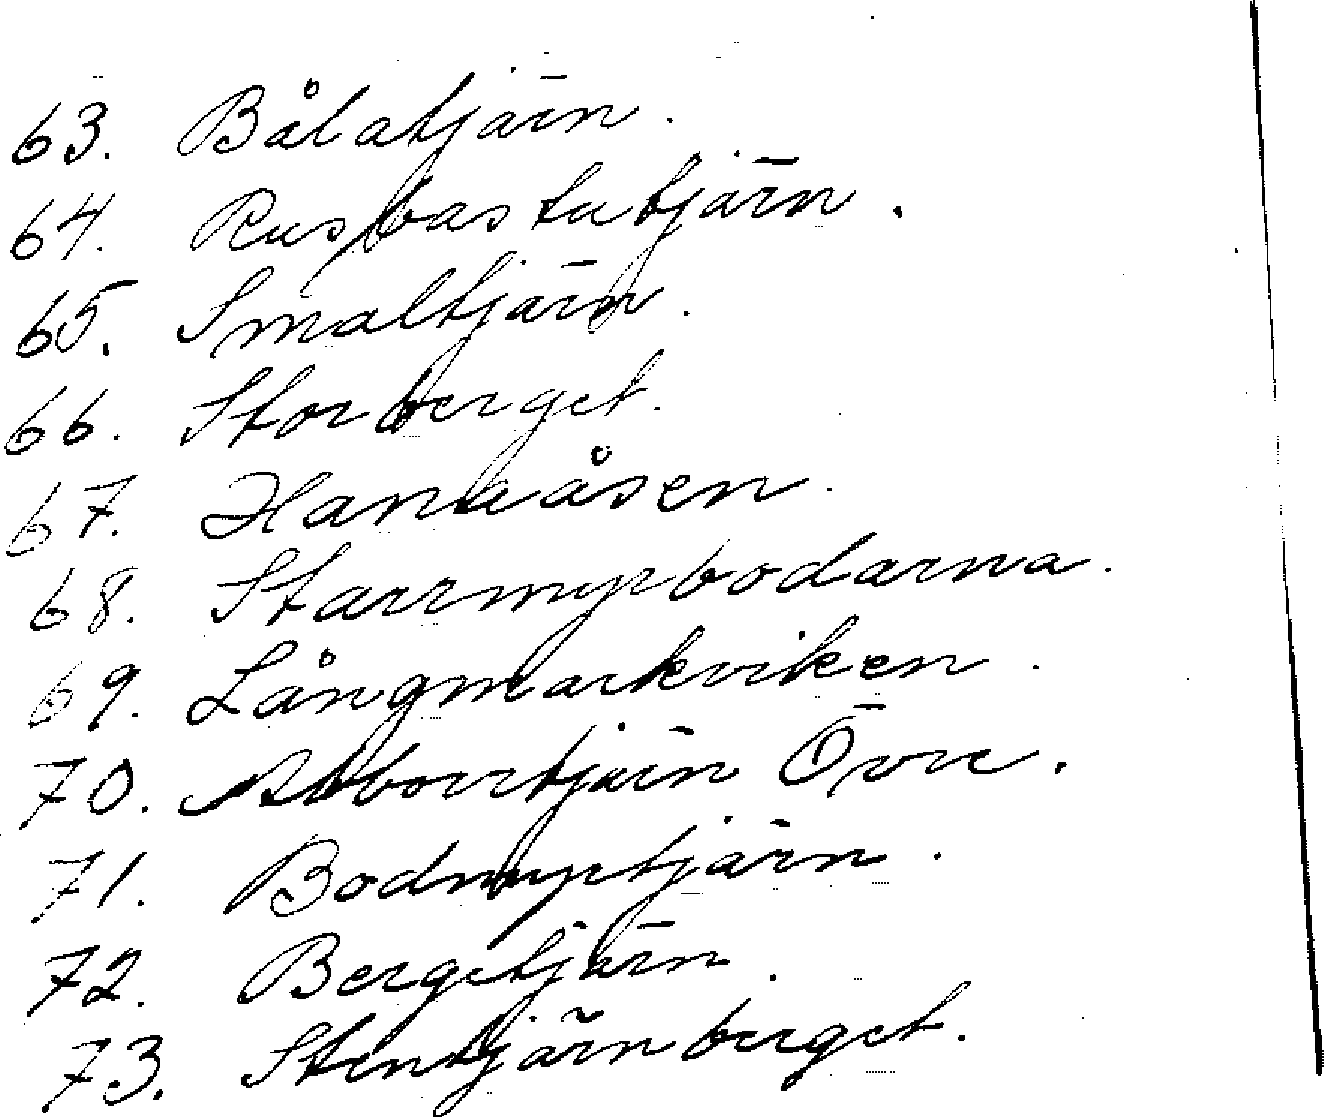 63. Båłatjärn.
64. Rusbastutjärn.
65. Smaltjärn.
66. Storberget.
67. Hanaåsen.
68. Starrmyrbodarna.
69. Långmarkviken.
70. Abborrtjärn Övre.
71. Bodmyrtjärn.
72. Bergtjärn.
73. Stentjärnberget.